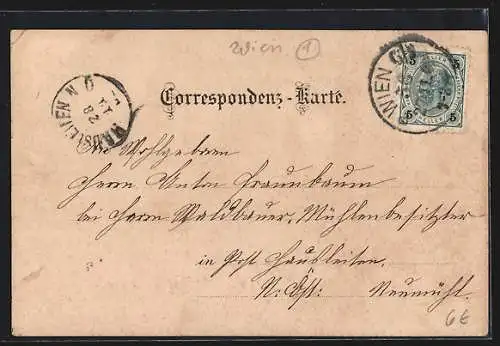 Wien 1
WIEN
5 5
5 5
HAUSLEITEN N Ö
Correspondenz-Karte.
Sr. Wohlgeboren
Herrn Anton Traunbaum
bei Herrn Waldbauer, Mühlenbesitzer
in Post Hausleiten.
N: Öst: Neumühl.
6€